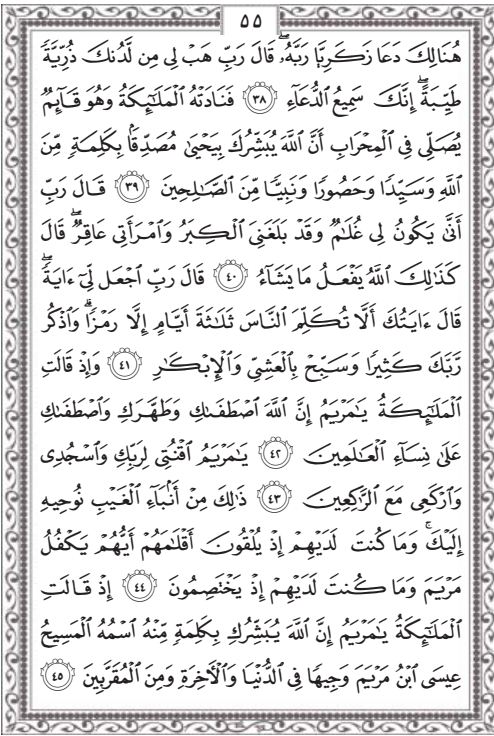 ٥٥
هُنَالِكَ دَعَا زَكَرِيَّا رَبَّهُۥۖ قَالَ رَبِّ هَبْ لِى مِن لَّدُنكَ ذُرِّيَّةٗ
طَيِّبَةًۖ إِنَّكَ سَمِيعُ الدُّعَآءِ ٣٨ فَنَادَتْهُ الْمَلَٰٓئِكَةُ وَهُوَ قَآئِمٞ
يُصَلِّى فِى الْمِحْرَابِ أَنَّ اللَّهَ يُبَشِّرُكَ بِيَحْيَىٰ مُصَدِّقَۢا بِكَلِمَةٖ مِّنَ
اللَّهِ وَسَيِّدٗا وَحَصُورٗا وَنَبِيّٗا مِّنَ الصَّٰلِحِينَ ٣٩ قَالَ رَبِّ
أَنَّىٰ يَكُونُ لِى غُلَٰمٞ وَقَدْ بَلَغَنِىَ الْكِبَرُ وَامْرَأَتِى عَاقِرٞۖ قَالَ
كَذَٰلِكَ اللَّهُ يَفْعَلُ مَا يَشَآءُ ٤٠ قَالَ رَبِّ اجْعَل لِّىٓ ءَايَةٗۖ
قَالَ ءَايَتُكَ أَلَّا تُكَلِّمَ النَّاسَ ثَلَٰثَةَ أَيَّامٍ إِلَّا رَمْزٗاۗ وَاذْكُر
رَّبَّكَ كَثِيرٗا وَسَبِّحْ بِالْعَشِىِّ وَالْإِبْكَٰرِ ٤١ وَإِذْ قَالَتِ
الْمَلَٰٓئِكَةُ يَٰمَرْيَمُ إِنَّ اللَّهَ اصْطَفَىٰكِ وَطَهَّرَكِ وَاصْطَفَىٰكِ
عَلَىٰ نِسَآءِ الْعَٰلَمِينَ ٤٢ يَٰمَرْيَمُ اقْنُتِى لِرَبِّكِ وَاسْجُدِى
وَارْكَعِى مَعَ الرَّٰكِعِينَ ٤٣ ذَٰلِكَ مِنْ أَنۢبَآءِ الْغَيْبِ نُوحِيهِ
إِلَيْكَۚ وَمَا كُنتَ لَدَيْهِمْ إِذْ يُلْقُونَ أَقْلَٰمَهُمْ أَيُّهُمْ يَكْفُلُ
مَرْيَمَ وَمَا كُنتَ لَدَيْهِمْ إِذْ يَخْتَصِمُونَ ٤٤ إِذْ قَالَتِ
الْمَلَٰٓئِكَةُ يَٰمَرْيَمُ إِنَّ اللَّهَ يُبَشِّرُكِ بِكَلِمَةٖ مِّنْهُ اسْمُهُ الْمَسِيحُ
عِيسَى ابْنُ مَرْيَمَ وَجِيهٗا فِى الدُّنْيَا وَالْءَاخِرَةِ وَمِنَ الْمُقَرَّبِينَ ٤٥